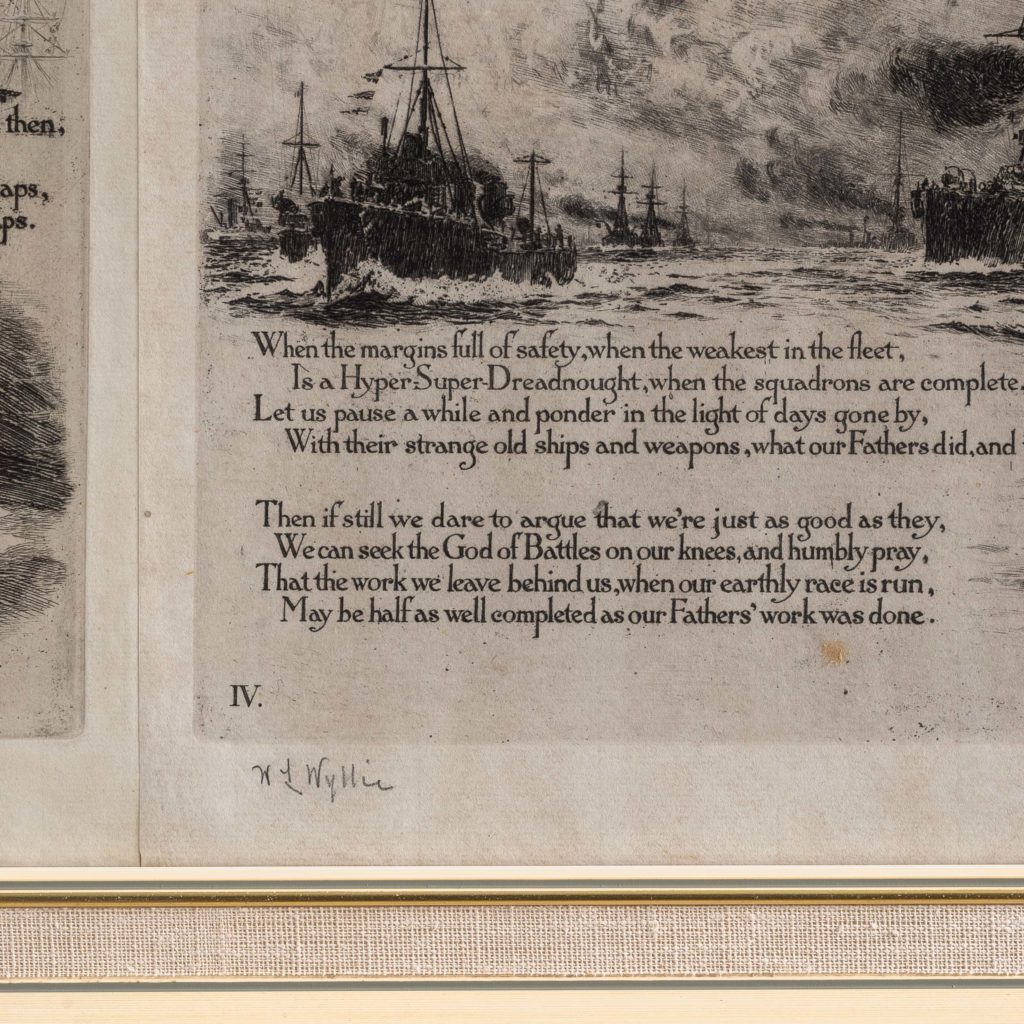 then,
aps,
ps.
When the margins full of safety, when the weakest in the fleet,
Is a Hyper-Super-Dreadnought, when the squadrons are complete.
Let us pause a while and ponder in the light of days gone by,
With their strange old ships and weapons, what our Fathers did, and
Then if still we dare to argue that we're just as good as they,
We can seek the God of Battles on our knees, and humbly pray,
That the work we leave behind us, when our earthly race is run,
May be half as well completed as our Fathers' work was done.
IV.
W L Wyllie